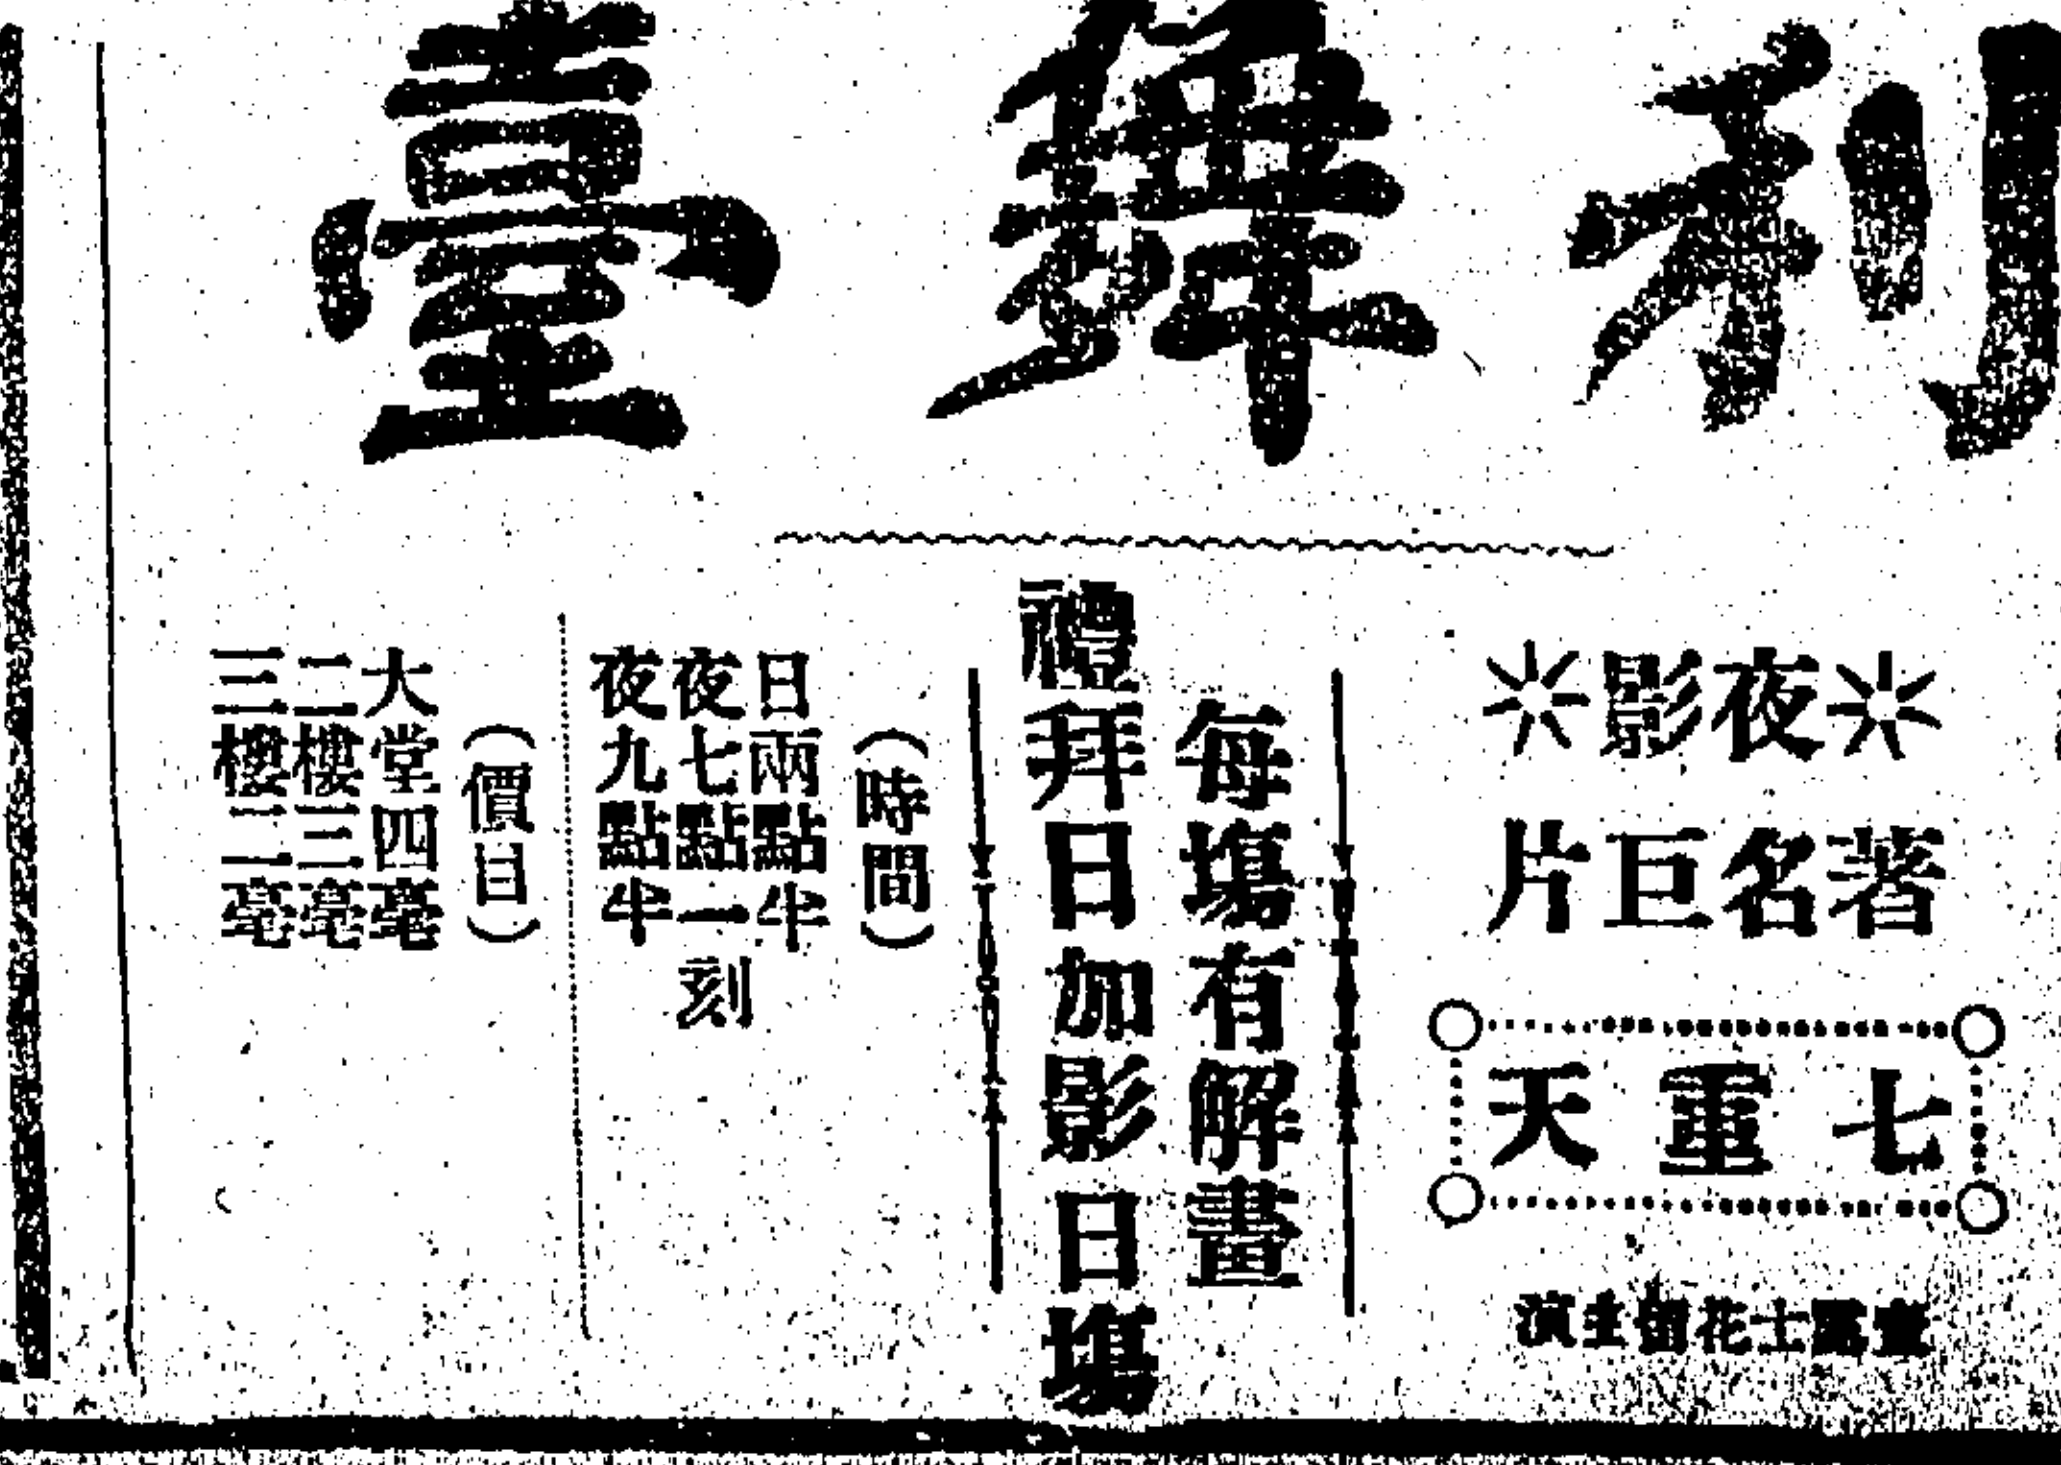 利舞臺
夜影
著名巨片
七重天
每塲有解畫
禮拜日加影日塲
(時間)
日兩點半
夜七點一刻
夜九點半
(價目)
大堂四毫
二樓三毫
三樓二毫